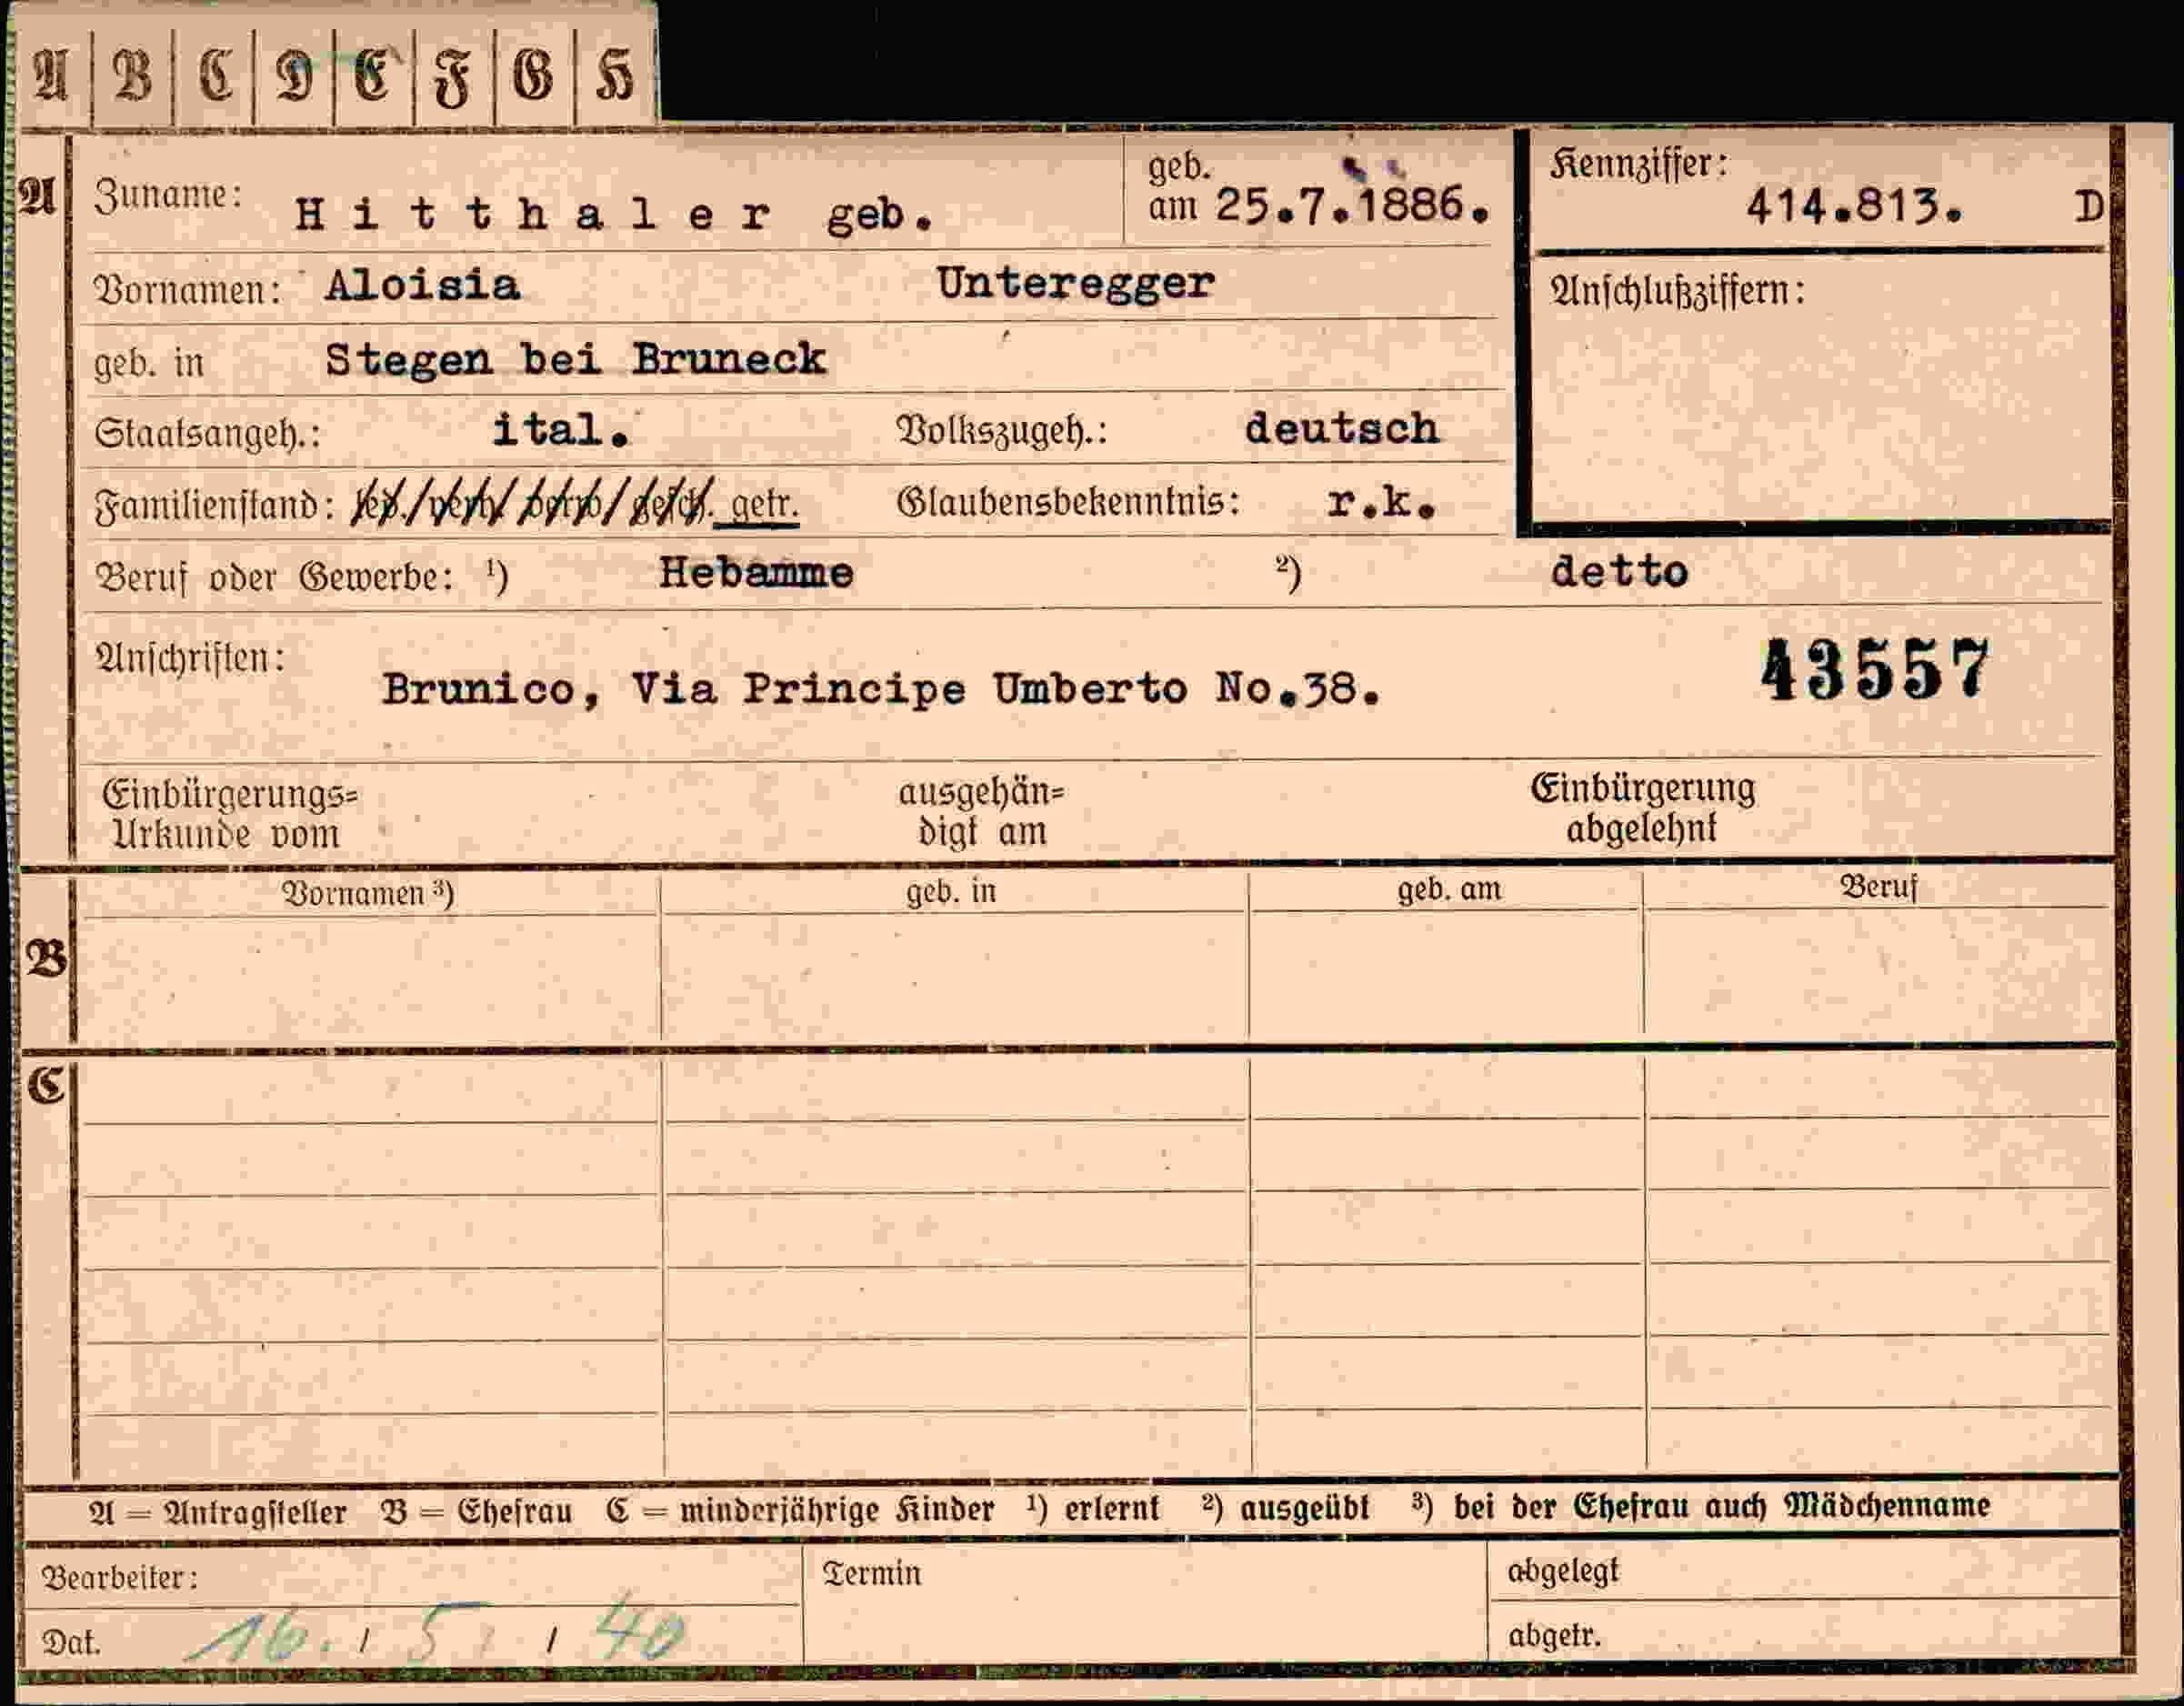 A B C D E F G H
A Zuname: Hitthaler geb. geb. am 25.7.1886. Kennziffer: 414.813. D
Vornamen: Aloisia Unteregger Anschlußziffern:
geb. in Stegen bei Bruneck
Staatsangeh.: ital. Volkszugeh.: deutsch
Familienstand: led./verh/verw/gesch. getr. Glaubensbekenntnis: r.k.
Beruf oder Gewerbe: ¹) Hebamme ²) detto
Anschriften: Brunico, Via Principe Umberto No.38. 43557
Einbürgerungs= ausgehän= Einbürgerung
Urkunde vom digt am abgelehnt
Vornamen ³) geb. in geb. am Beruf
B
C
A = Antragsteller B = Ehefrau C = minderjährige Kinder ¹) erlernt ²) ausgeübt ³) bei der Ehefrau auch Mädchenname
Bearbeiter: Termin abgelegt
Dat. 16. / 5 / 40 abgetr.